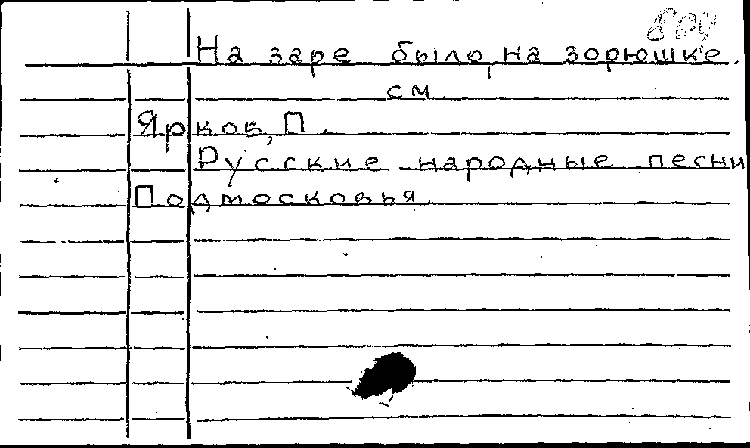 На заре было, на зорюшке.
см
Ярков, П.
Русские народные песни
Подмосковья